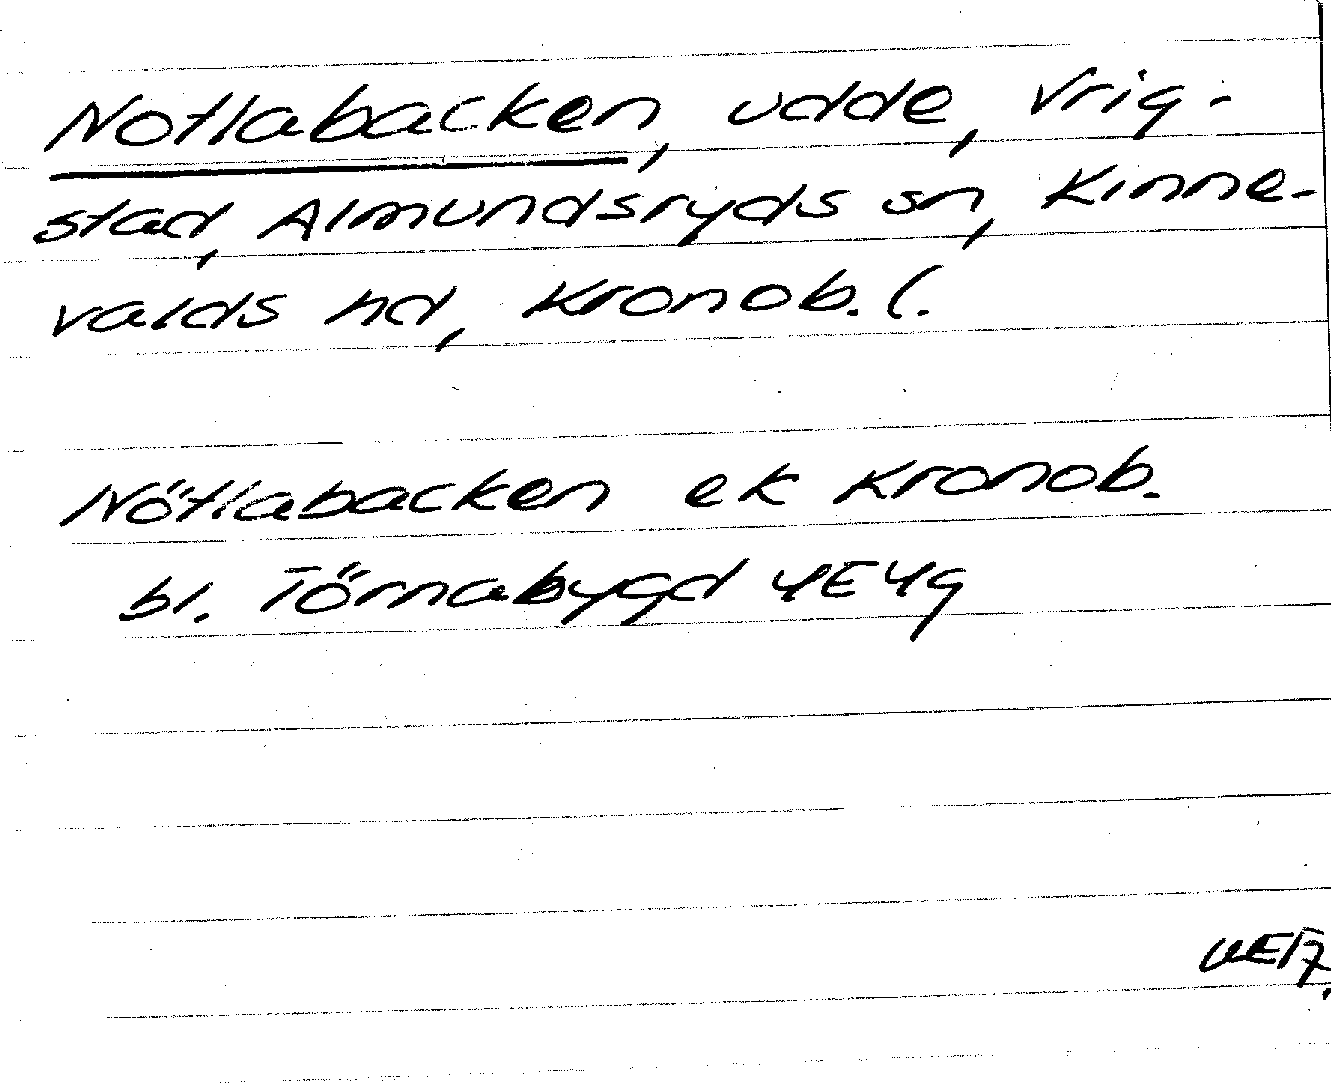 Notlabacken, udde, Vrig-
stad, Almundsryds sn, Kinne-
valds hd, Kronob. l.
Nötlabacken ek Kronob.
bl. Törnabygd 4E4g